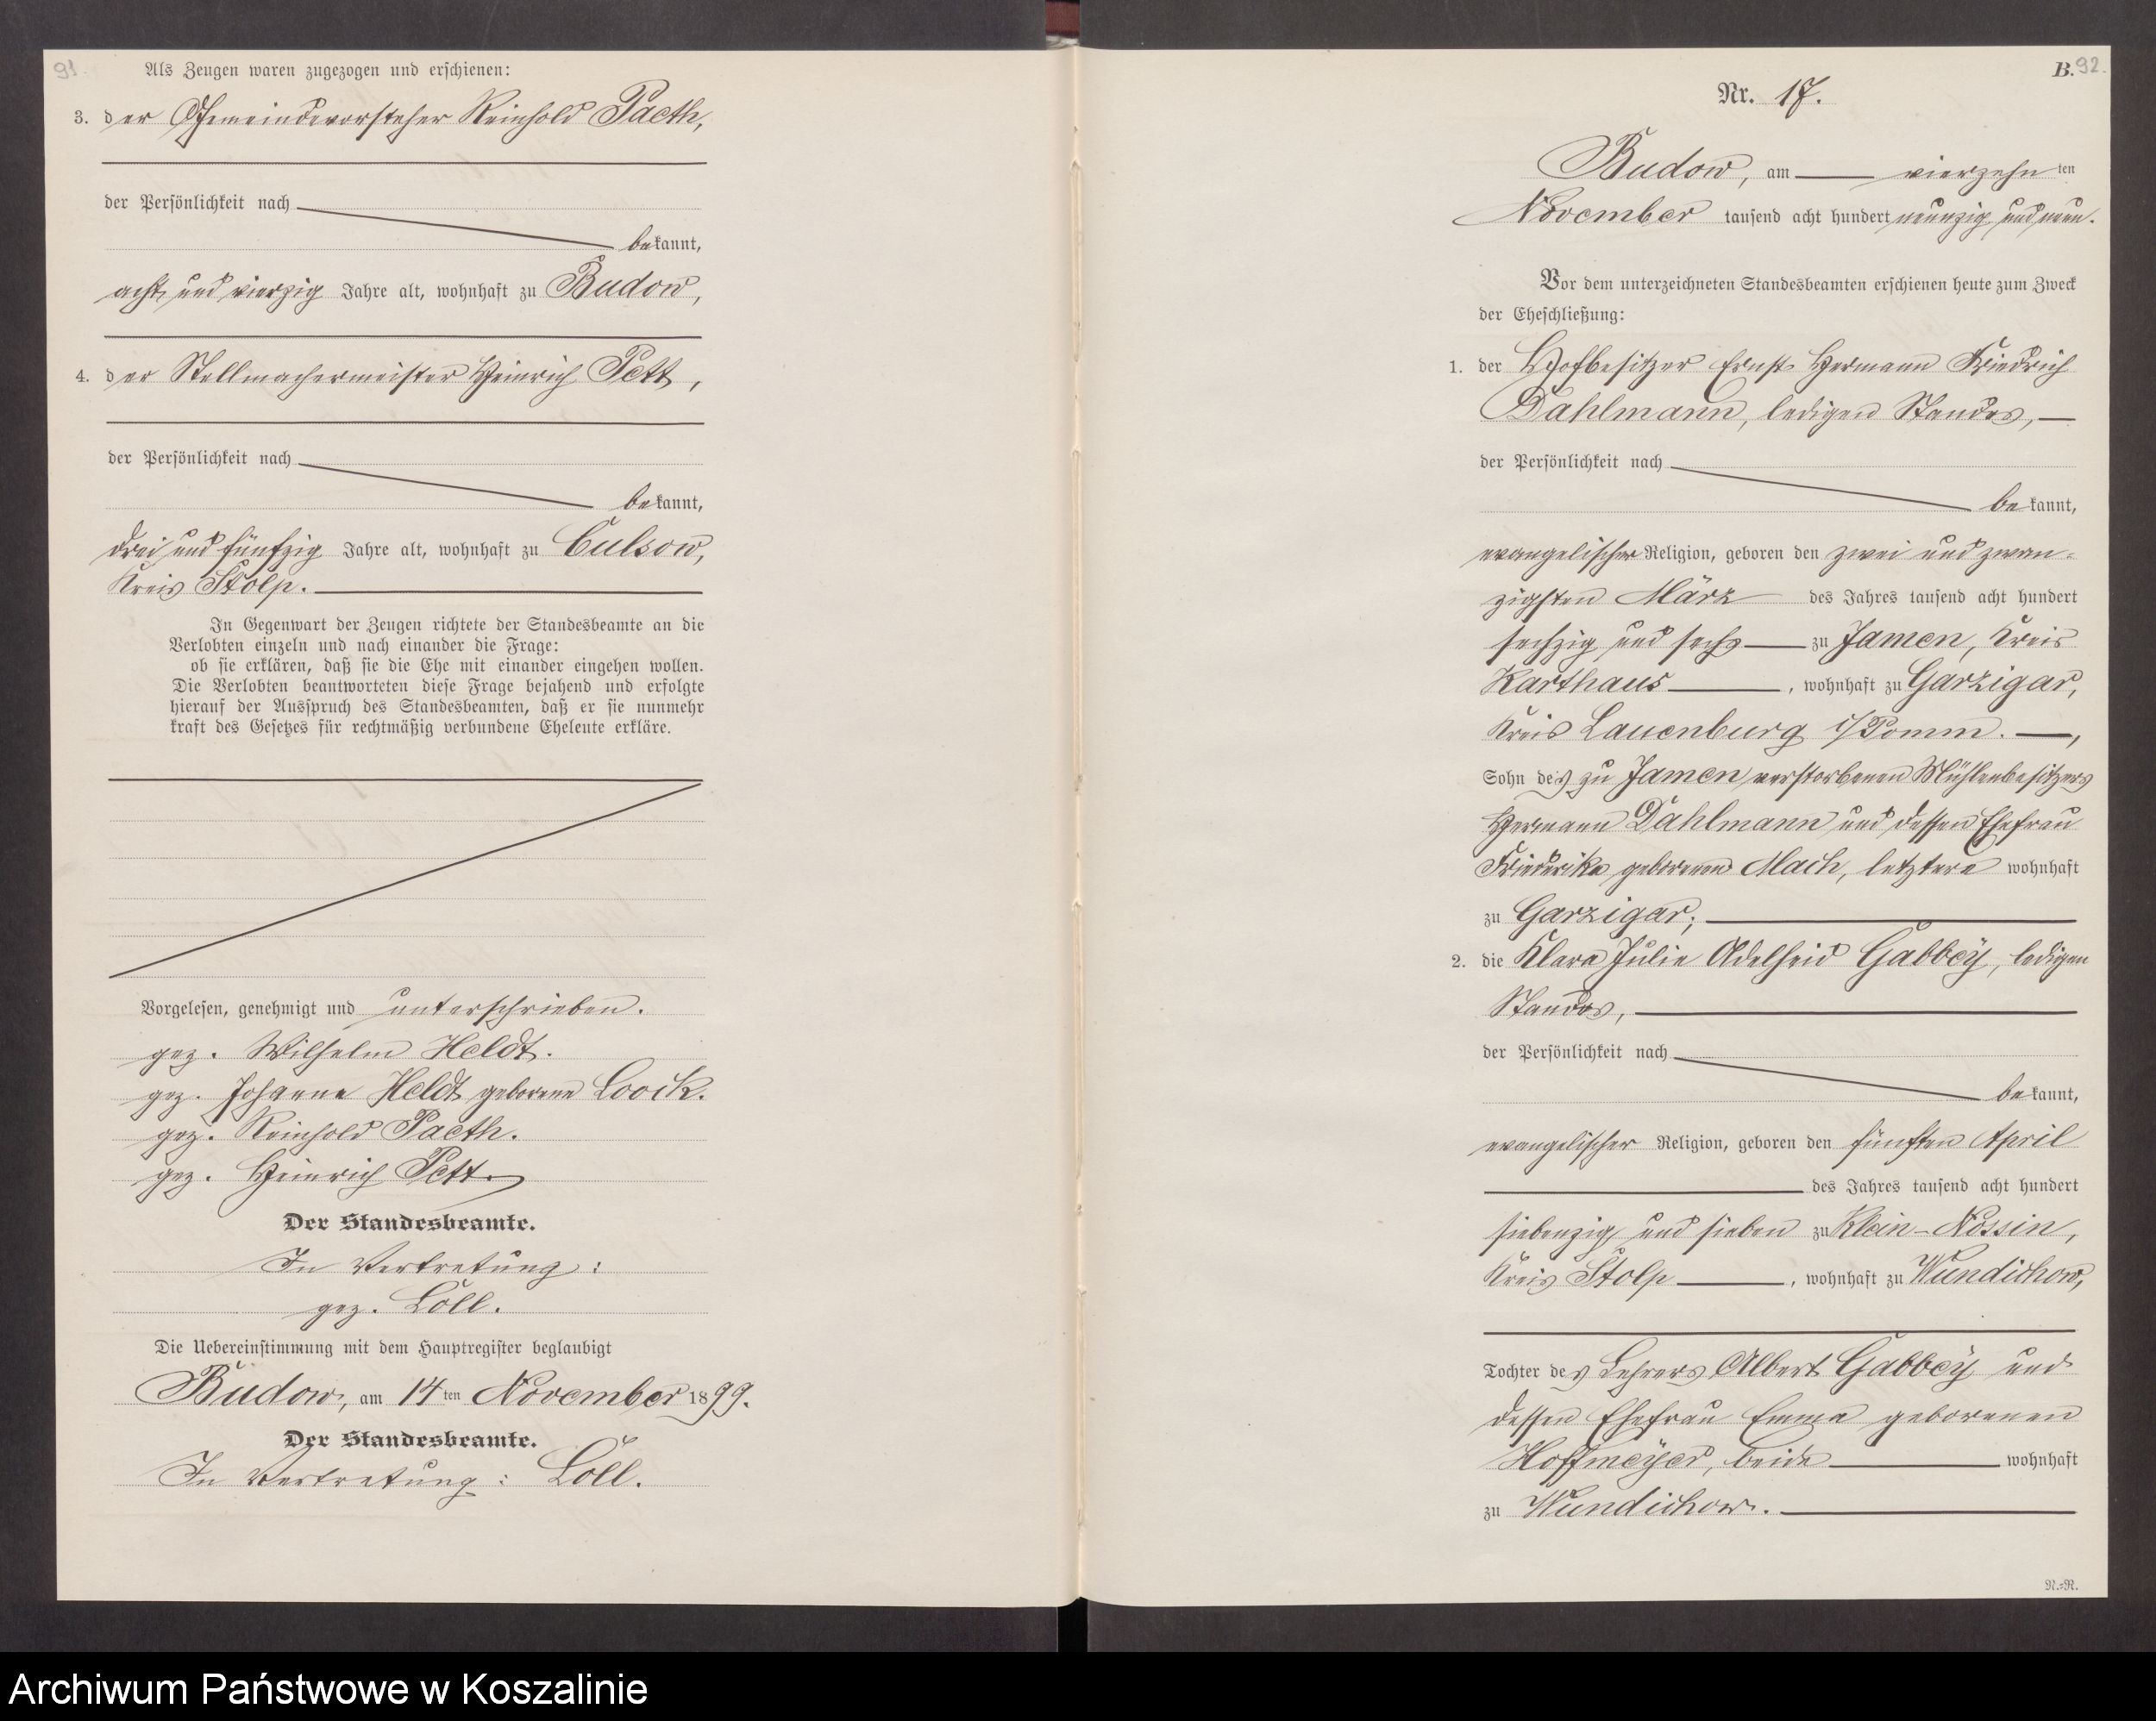 91.
Als Zeugen waren zugezogen und erschienen:
3. der Gemeindevorsteher Reinhold Paeth,
der Persönlichkeit nach
bekannt,
acht und vierzig Jahre alt, wohnhaft zu Budow,
4. der Stellmachermeister Heinrich Pett,
der Persönlichkeit nach
bekannt,
drei und fünfzig Jahre alt, wohnhaft zu Culsow,
Kreis Stolp.
In Gegenwart der Zeugen richtete der Standesbeamte an die
Verlobten einzeln und nach einander die Frage:
ob sie erklären, daß sie die Ehe mit einander eingehen wollen.
Die Verlobten beantworteten diese Frage bejahend und erfolgte
hierauf der Ausspruch des Standesbeamten, daß er sie nunmehr
kraft des Gesetzes für rechtmäßig verbundene Eheleute erkläre.
Vorgelesen, genehmigt und unterschrieben.
gez. Wilhelm Heldt.
gez. Johanne Heldt geborene Loock.
gez. Reinhold Paeth.
gez. Heinrich Pett.
Der Standesbeamte.
In Vertretung:
gez. Löll.
Die Uebereinstimmung mit dem Hauptregister beglaubigt
Budow, am 14ten November 1899.
Der Standesbeamte.
In Vertretung: Löll.
B. 92.
Nr. 17.
Budow, am vierzehnten
November tausend acht hundert neunzig und neun.
Vor dem unterzeichneten Standesbeamten erschienen heute zum Zweck
der Eheschließung:
1. der Hofbesitzer Ernst Hermann Friedrich
Dahlmann, ledigen Standes,
der Persönlichkeit nach
bekannt,
evangelischer Religion, geboren den zwei und zwan-
zigsten März des Jahres tausend acht hundert
sechzig und sechs zu Jamen, Kreis
Karthaus, wohnhaft zu Garzigar,
Kreis Lauenburg i/Pomm.,
Sohn des zu Jamen verstorbenen Mühlenbesitzers
Hermann Dahlmann und dessen Ehefrau
Friederike geborenen Mach, letztere wohnhaft
zu Garzigar;
2. die Klara Julie Adelheid Gabbey, ledigen
Standes,
der Persönlichkeit nach
bekannt,
evangelischer Religion, geboren den fünften April
des Jahres tausend acht hundert
siebenzig und sieben zu Klein-Nossin,
Kreis Stolp, wohnhaft zu Wundichow,
Tochter des Lehrers Albert Gabbey und
dessen Ehefrau Emma geborenen
Hoffmeyer, beide wohnhaft
zu Wundichow.
N.=N.
Archiwum Państwowe w Koszalinie